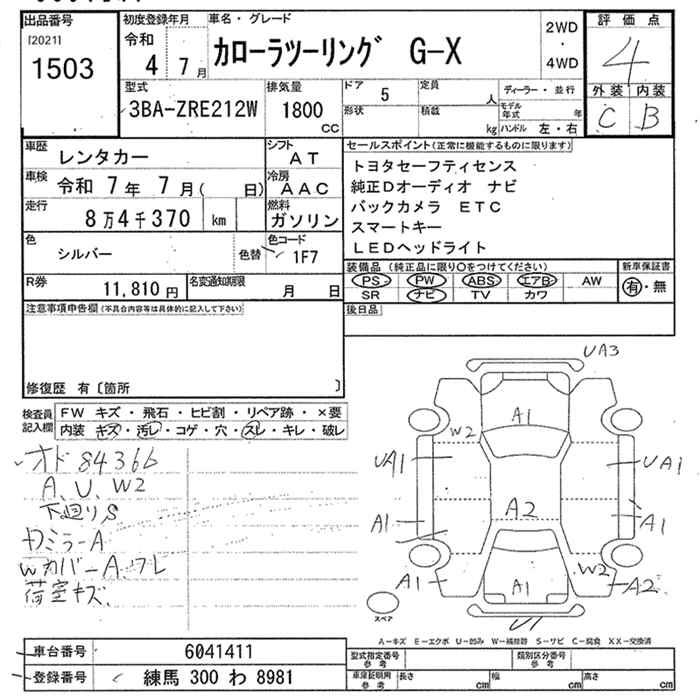 出品番号
[2021]
1503
初度登録年月
令和
4 7月
車名・グレード
カローラツーリング G-X
2WD
・
4WD
評価点
4
外装 内装
C B
型式
3BA-ZRE212W
排気量
1800
CC
ドア 5
形状
定員
人
積載
kg
ディーラー・並行
モデル年式 年
ハンドル 左・右
車歴 レンタカー
シフト AT
車検 令和 7年 7月( 日)
冷房 AAC
走行 8万4千370 km
燃料 ガソリン
色 シルバー
色替
色コード 1F7
R券 11,810円
名変通知期限 月 日
セールスポイント(正常に機能するものに限ります)
トヨタセーフティセンス
純正Dオーディオ ナビ
バックカメラ ETC
スマートキー
LEDヘッドライト
装備品 (純正品に限り○をつけてください)
新車保証書
PS PW ABS エアB AW
SR ナビ TV カワ
有・無
後日品
注意事項申告欄(不具合内容等は具体的に記入して下さい)
修復歴 有〔箇所 〕
検査員記入欄
FW キズ・飛石・ヒビ割・リペア跡・×要
内装 キズ・汚レ・コゲ・穴・スレ・キレ・破レ
オド 84366
A、U、W2
下廻りS
カミラーA
Wカバー A、ワレ
荷室キズ、
UA3
A1
W2
UA1
UA1
A1
A2
A1
A1
A1
W2
A2
U1
スペア
A-キズ E-エクボ U-凹み W-補修跡 S-サビ C-腐食 XX-交換済
車台番号 6041411
登録番号 練馬 300 わ 8981
型式指定番号
参考
類別区分番号
参考
車庫証明用
参考
長さ cm 幅 cm 高さ cm